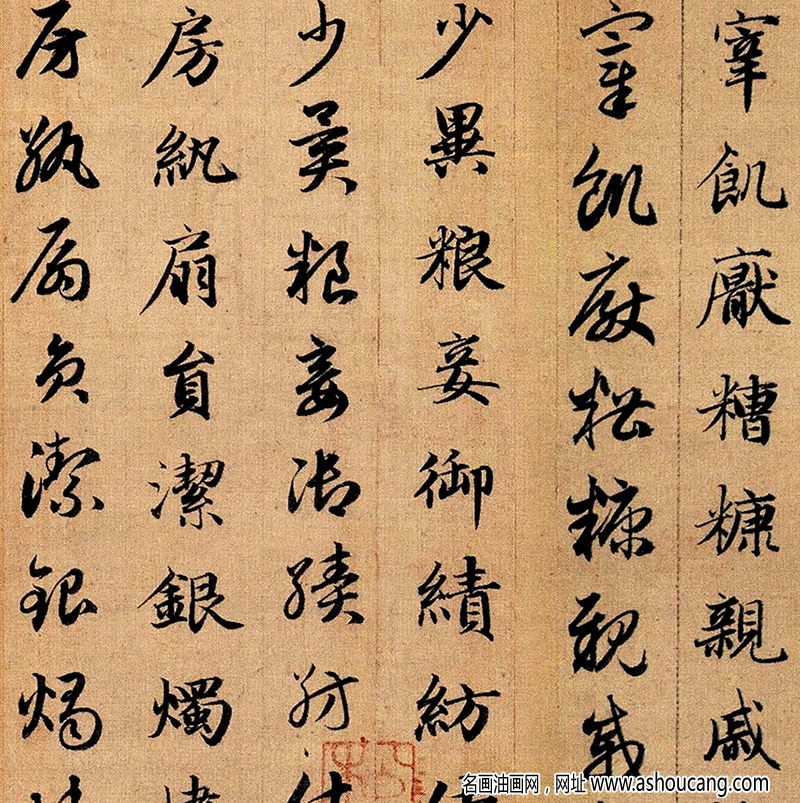 宰飢厭糟糠親戚
宰飢厭糟糠親戚
少異粮妾御績紡
少異粮妾御績紡
房紈扇員潔銀燭
房紈扇員潔銀燭
名画油画网，网址 www.ashoucang.com